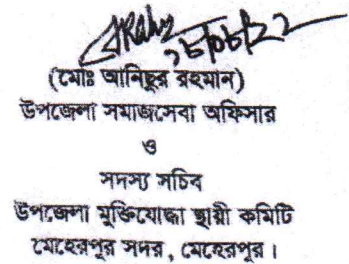 ২৮/০৮/২২
(মোঃ আনিছুর রহমান)
উপজেলা সমাজসেবা অফিসার
ও
সদস্য সচিব
উপজেলা মুক্তিযোদ্ধা স্থায়ী কমিটি
মেহেরপুর সদর, মেহেরপুর।